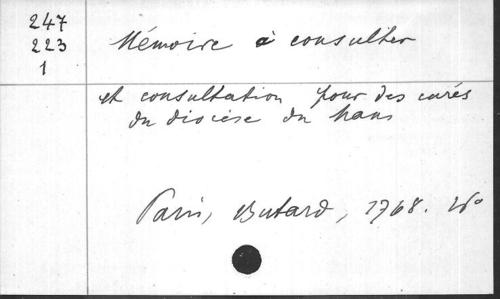 247
223
1
Mémoire à consulter
et consultation pour des curés
du diocèse du Mans
Paris, Butard, 1768.